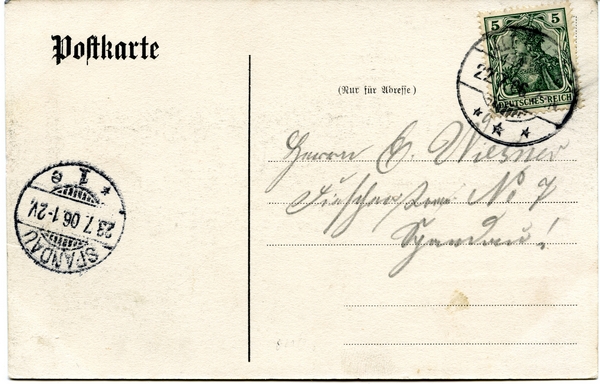 Postkarte
5 5
DEUTSCHES REICH
22
(Nur für Adresse)
Herrn E. Wiesner
No 7
Spandau!
SPANDAU
23.7.06.1-2V.
* 1 e